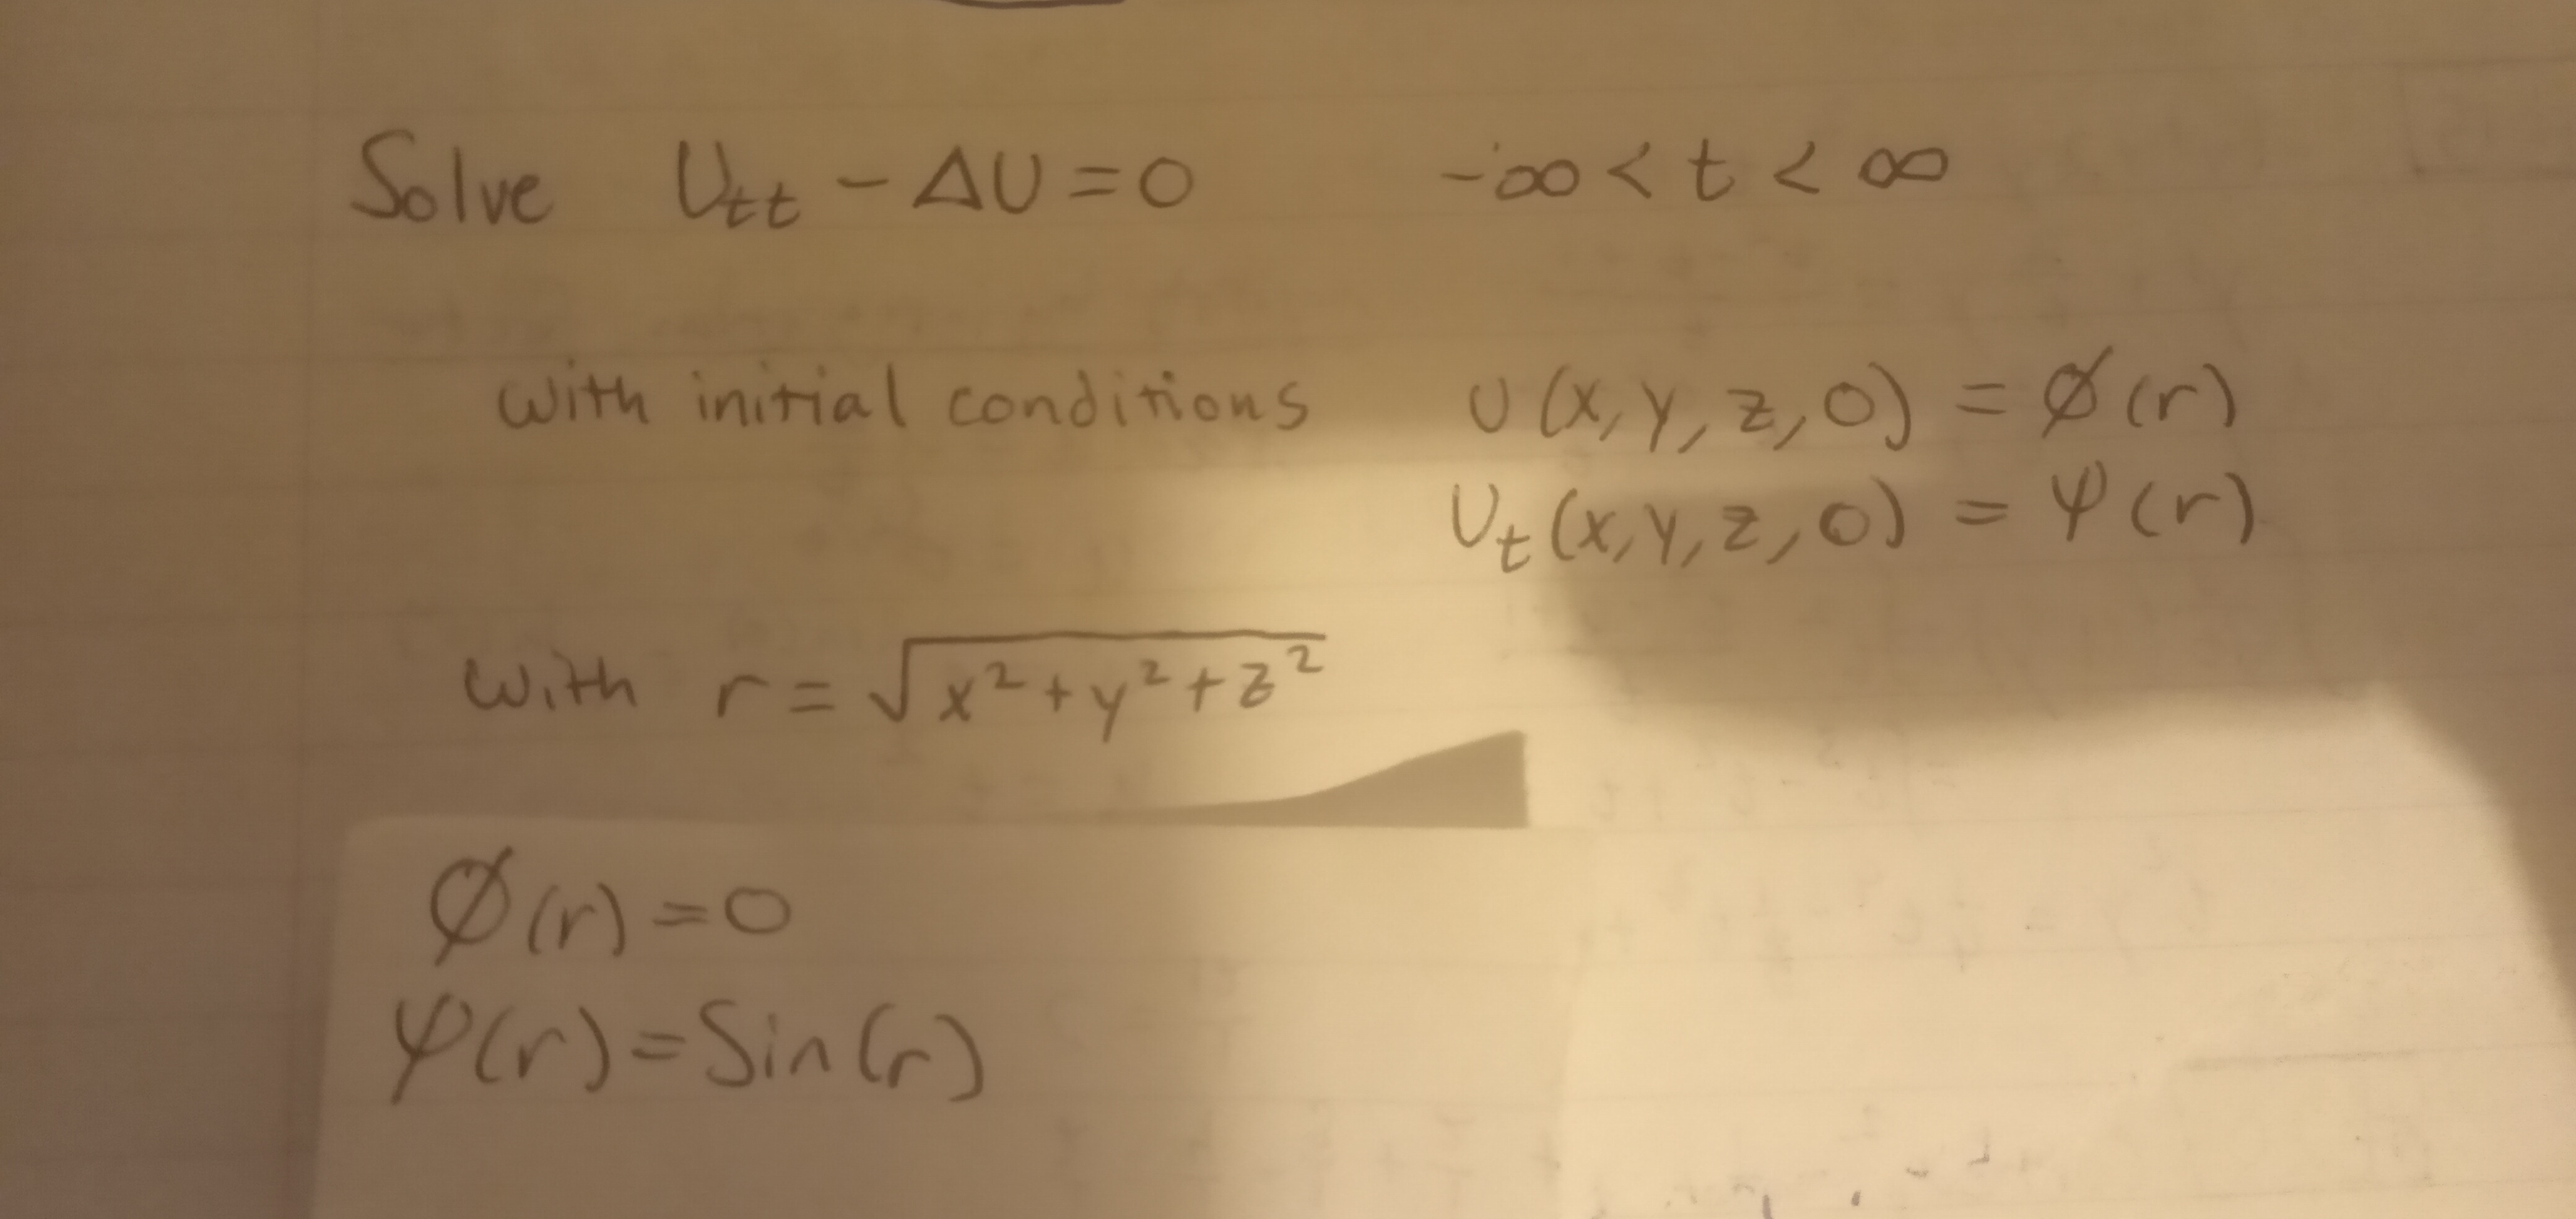 Solve Utt - ΔU = 0 -∞ < t < ∞
with initial conditions U(x,y,z,0) = ø(r)
Ut(x,y,z,0) = ψ(r)
with r = √x²+y²+z²
ø(r) = 0
ψ(r) = Sin(r)